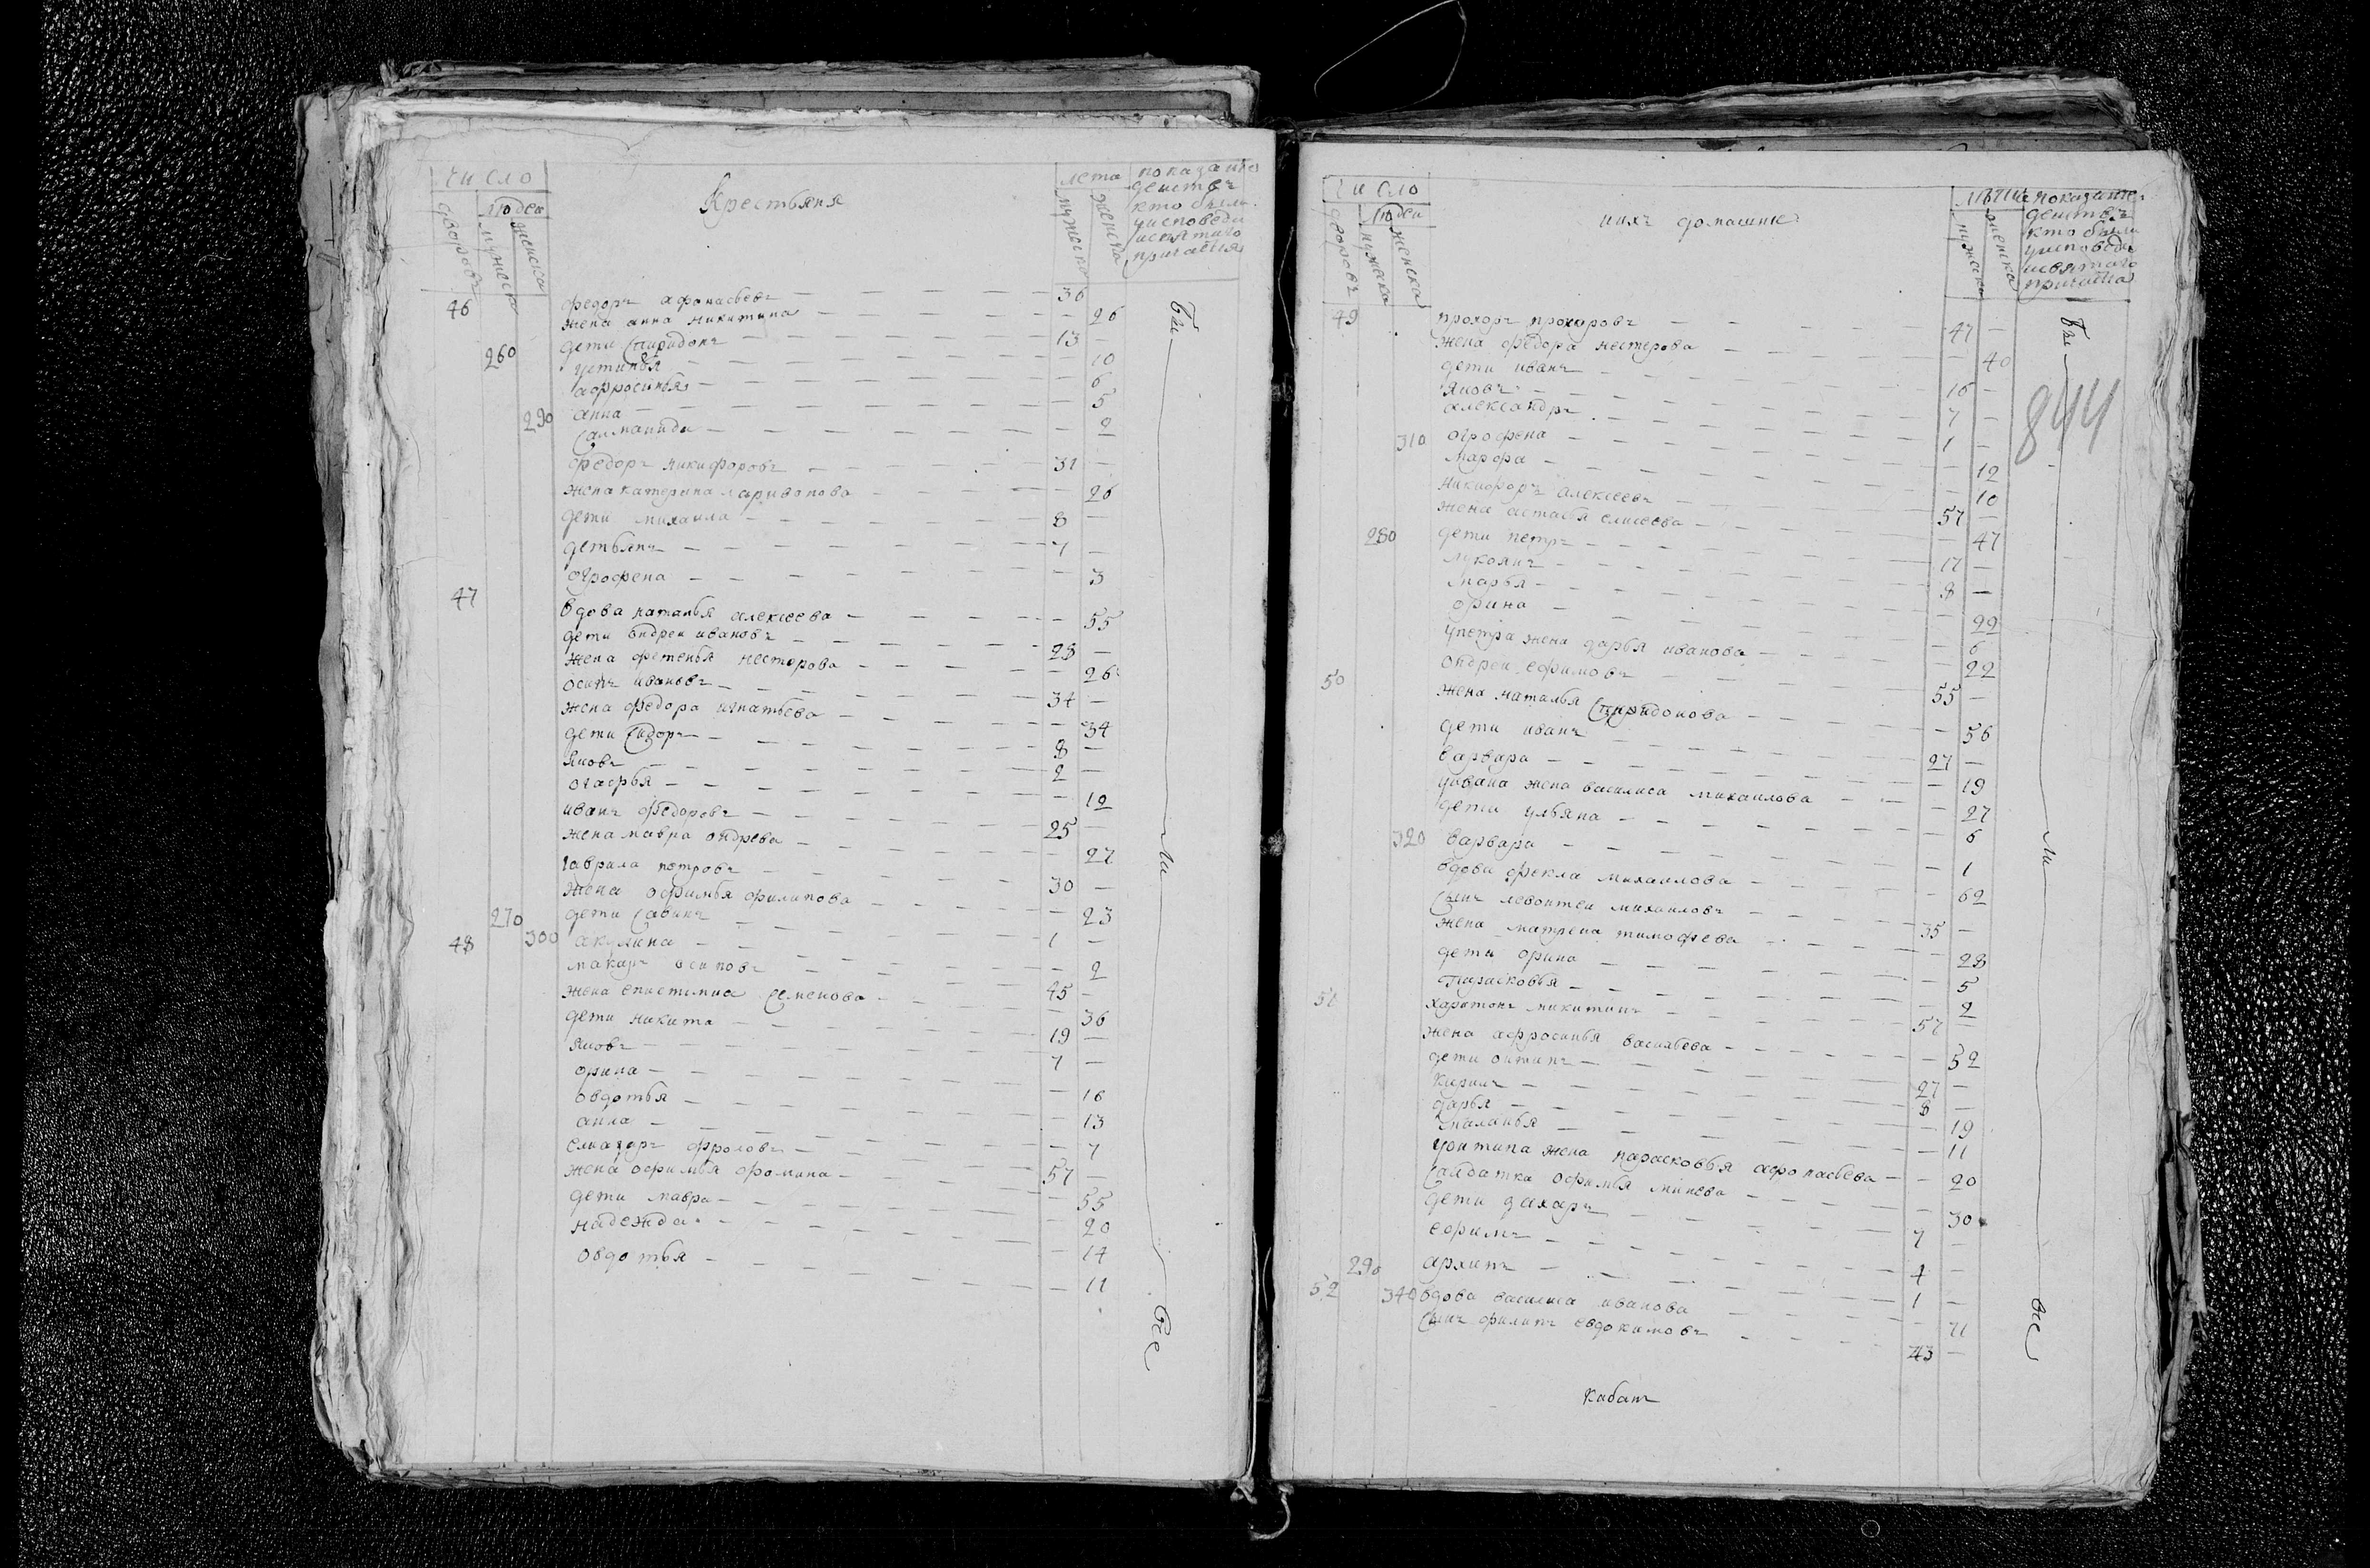 число
людеи
дворовъ
мужеска
женска
Крестьяня
лета
мужеска
женска
показа нио
действъ
кто были
уисповеди
исвятаго
причастия
46 федоръ афонасьевъ 36
жена анна никитина 26
260 дети спиридонъ 13
устинья 10
афросинья 6
290 анна 5
саломанида 2
федоръ никифоровъ 31
жена катерина ларивонова 26
дети михаила 8
детьянъ 7
огрофена 3
47 вдова наталья алексеева 55
дети ондреи ивановъ 28
жена фетенья нестерова 26
осипъ ивановъ 34
жена федора игнатьева 34
дети сидоръ 8
яковъ 2
огафья 12
иванъ федоровъ 25
жена мавра ондрева 27
гаврила петровъ 30
жена офимья филипова 23
270 дети савинъ 1
48 300 акулина 2
макаръ осиповъ 45
жена епистимиа семенова 36
дети никита 19
яковъ 7
орина 16
овдотья 13
анна 7
елиазаръ фроловъ 57
жена офимья фомина 55
дети мавра 20
надежда 14
овдотья 11
Бы ли все
число
людеи
дворовъ
мужеска
женска
ихъ домашние
лета
мужеска
женска
показание
действъ
кто были
уисповеди
исвятаго
причастиа
844
49 прохоръ прохоровъ 47
жена федора нестерова 40
дети иванъ 16
яковъ 7
александръ 1
310 огрофена 12
марфа 10
никифоръ алексеевъ 57
жена астафья елисеева 47
280 дети петръ 17
лукоянъ 8
марья 22
орина 6
упетра жена дарья иванова 22
50 ондреи ефимовъ 55
жена наталья спиридонова 56
дети иванъ 27
варвара 19
уивана жена василиса михаилова 27
дети ульяна 6
320 варвара 1
вдова фекла михаилова 62
сынъ левонтеи михаиловъ 35
жена матрена тимофева 28
дети орина 5
парасковья 2
51 харитонъ никитинъ 57
жена афросинья васильева 52
дети онтипъ 27
кирилъ 8
дарья 19
маланья 11
уонтипа жена парасковья афонасьева 20
салдатка офимья минева 30
дети захаръ 7
ефимъ 4
290 архипъ 1
52 340 вдова василиса иванова 71
сынъ филипъ евдокимовъ 43
Бы ли все
Кабат